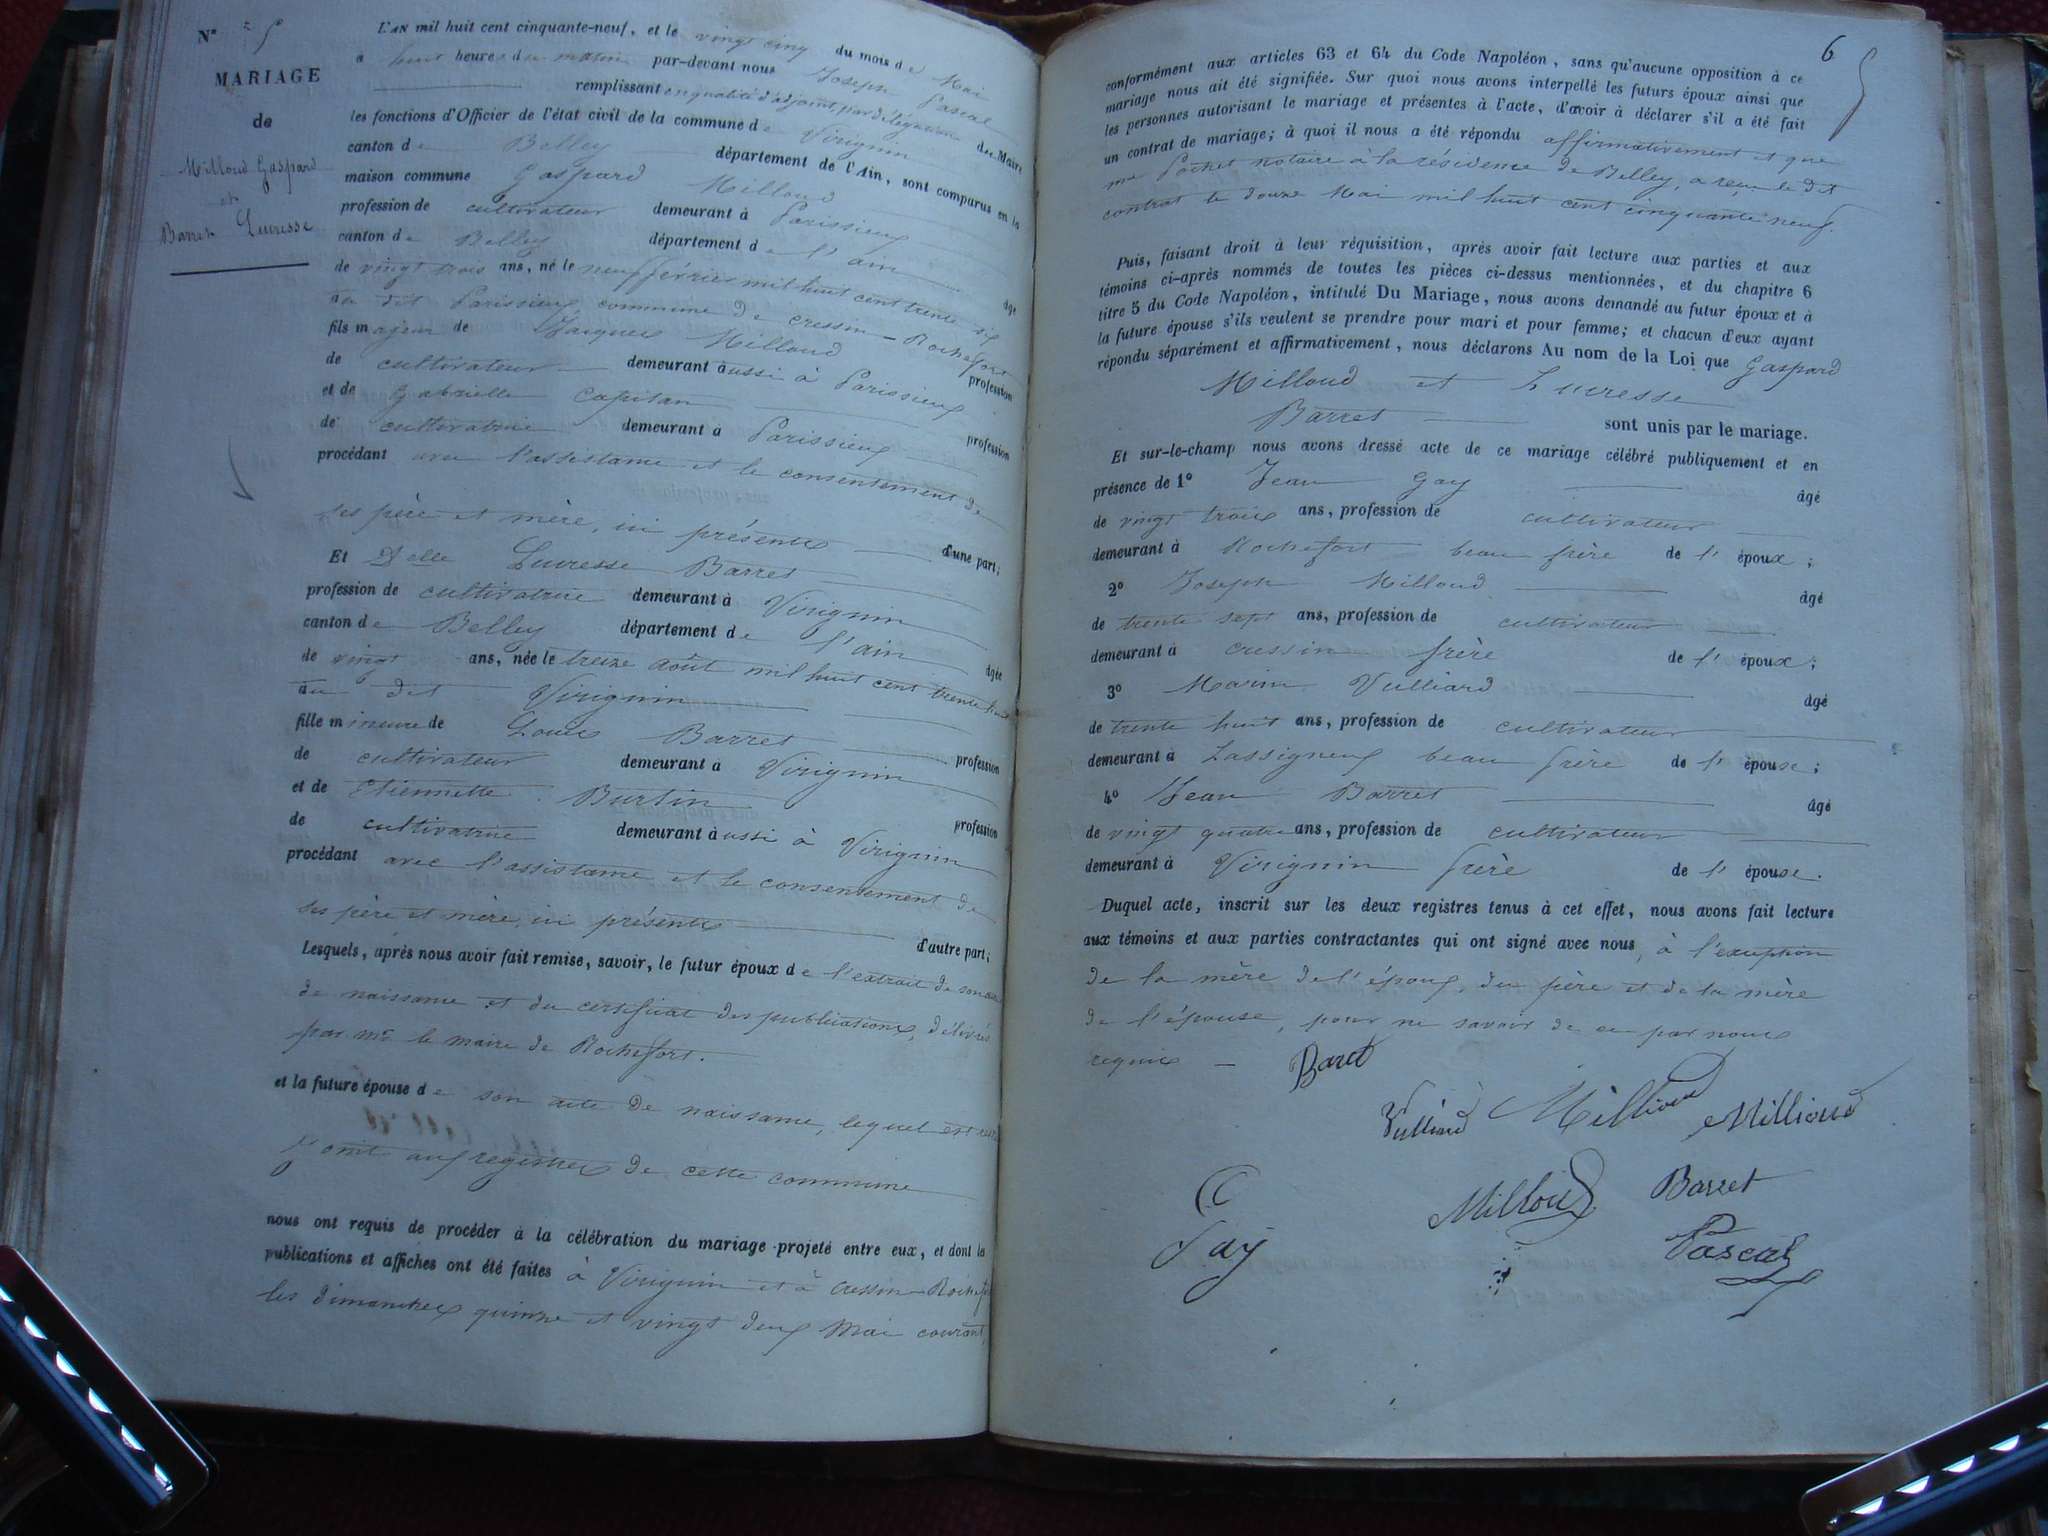 N° 5
MARIAGE
de
Milloud Gaspard
et
Barret Lucresse
L'AN mil huit cent cinquante-neuf, et le vingt cinq du mois de Mai
a huit heures du matin par-devant nous Joseph Pascal
remplissant en qualité d'adjoint, par délégation du Maire
les fonctions d'Officier de l'état civil de la commune de Virignin
canton de Belley département de l'Ain, sont comparus en la
maison commune Gaspard Milloud
profession de cultivateur demeurant à Parissieux
canton de Belley département de l'ain âgé
de vingt trois ans, né le neuf février mil huit cent trente six
au dit Parissieux, commune de cressin-Rochefort
fils majeur de Jacques Milloud profession
de cultivateur demeurant aussi à Parissieux
et de Gabrielle Capitan profession
de cultivatrice demeurant à Parissieux
procédant avec l'assistance et le consentement de
ses père et mère, ici présents d'une part;
Et Delle Lucresse Barret
profession de cultivatrice demeurant à Virignin
canton de Belley département de l'ain âgée
de vingt ans, née le treize août mil huit cent trente huit
au dit Virignin
fille mineure de Louis Barret profession
de cultivateur demeurant à Virignin
et de Etiennette Burtin profession
de cultivatrice demeurant aussi à Virignin
procédant avec l'assistance et le consentement de
ses père et mère, ici présents d'autre part;
Lesquels, après nous avoir fait remise, savoir, le futur époux de l'extrait de son acte
de naissance et du certificat des publications, délivrés
par mr le maire de Rochefort.
et la future épouse de son acte de naissance, lequel est
aux registres de cette commune
nous ont requis de procéder à la célébration du mariage projeté entre eux, et dont les
publications et affiches ont été faites à Virignin et à cressin-Rochefort
les dimanches quinze et vingt deux Mai courant,
6
conformément aux articles 63 et 64 du Code Napoléon, sans qu'aucune opposition à ce
mariage nous ait été signifiée. Sur quoi nous avons interpellé les futurs époux ainsi que
les personnes autorisant le mariage et présentes à l'acte, d'avoir à déclarer s'il a été fait
un contrat de mariage; à quoi il nous a été répondu affirmativement et que
me Pochet notaire à la résidence de Belley, a reçu le dit
contrat le douze Mai mil huit cent cinquante neuf.
Puis, faisant droit à leur réquisition, après avoir fait lecture aux parties et aux
témoins ci-après nommés de toutes les pièces ci-dessus mentionnées, et du chapitre 6
titre 5 du Code Napoléon, intitulé Du Mariage, nous avons demandé au futur époux et à
la future épouse s'ils veulent se prendre pour mari et pour femme; et chacun d'eux ayant
répondu séparément et affirmativement, nous déclarons Au nom de la Loi que Gaspard
Milloud et Lucresse
Barret sont unis par le mariage.
Et sur-le-champ nous avons dressé acte de ce mariage célébré publiquement et en
présence de 1° Jean Gay âgé
de vingt trois ans, profession de cultivateur
demeurant à Rochefort beau frère de l'époux;
2° Joseph Milloud âgé
de trente sept ans, profession de cultivateur
demeurant à cressin frère de l'époux;
3° Marin Vulliard âgé
de trente huit ans, profession de cultivateur
demeurant à Lassigneux beau frère de l'épouse;
4° Jean Barret âgé
de vingt quatre ans, profession de cultivateur
demeurant à Virignin frère de l'épouse.
Duquel acte, inscrit sur les deux registres tenus à cet effet, nous avons fait lecture
aux témoins et aux parties contractantes qui ont signé avec nous, à l'exception
de la mère de l'époux, du père et de la mère
de l'épouse, pour ne savoir de ce par nous
requis
Baret
Vulliard Millioud Millioud
Gay Milloud Barret
Pascal